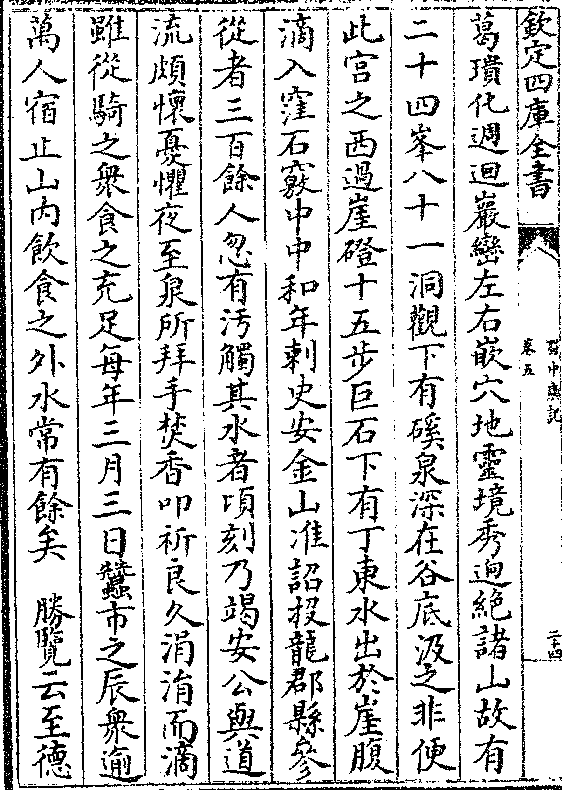 欽定四庫全書
蜀中廣記
卷五
二十四
葛璝化週迴巖巒左右嵌穴地靈境秀逈絶諸山故有
二十四峯八十一洞觀下有磎泉深在谷底汲之非便
此宫之西過崖磴十五步巨石下有丁東水出於崖腹
滴入窪石竅中中和年刺史安金山准詔投龍郡縣參
從者三百餘人忽有汚觸其水者頃刻乃竭安公與道
流頗懷憂懼夜至泉所拜手焚香叩祈良久涓涓而滴
雖從騎之衆食之充足每年三月三日蠶市之辰衆逾
萬人宿止山内飲食之外水常有餘矣　勝覽云至德